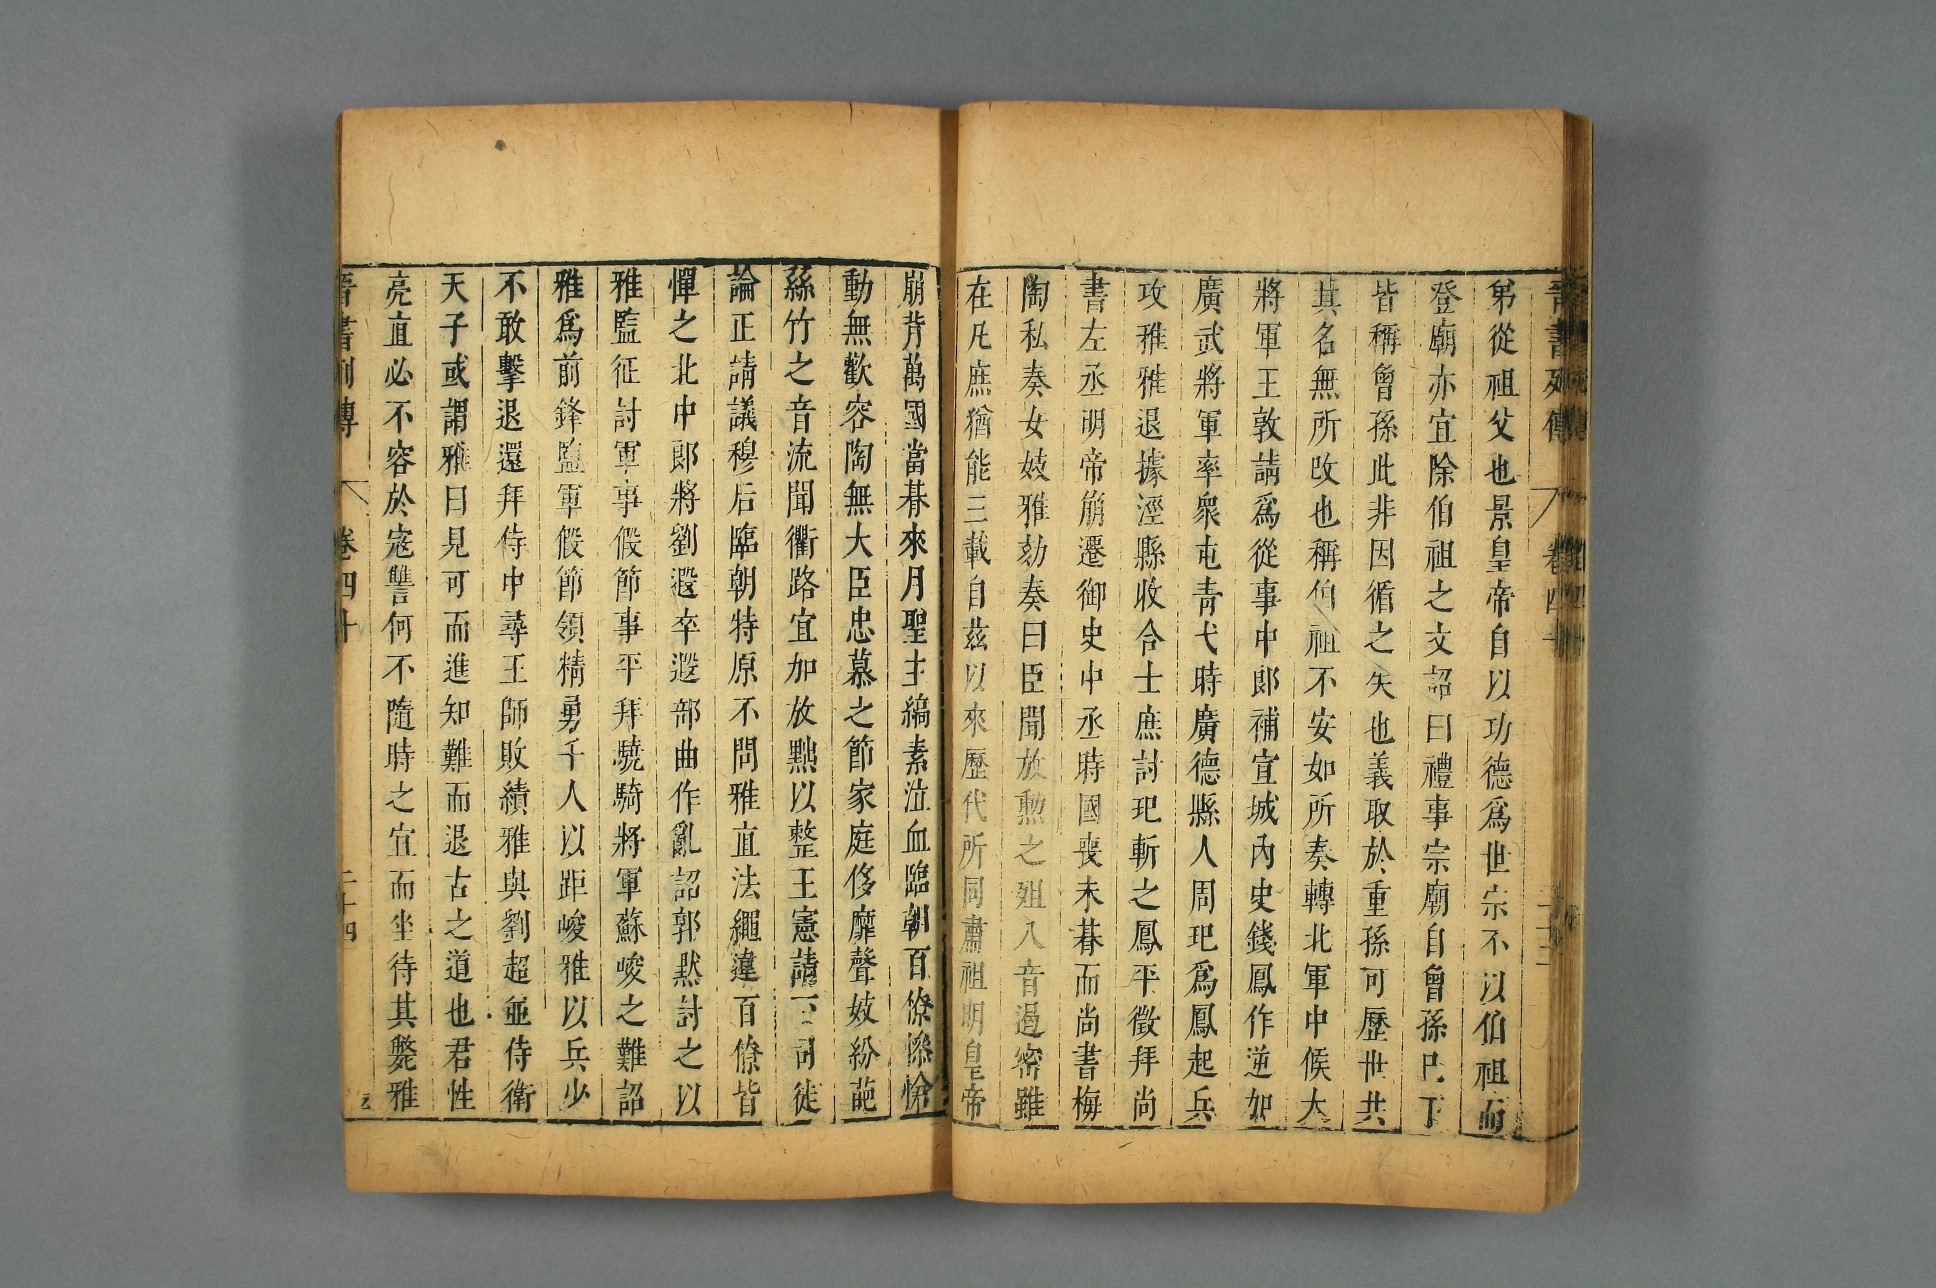 晉書列傳 卷四十
弟從祖父也景皇帝自以功德爲世宗不以伯祖而
登廟亦宜除伯祖之文詔曰禮事宗廟自曾孫已下
皆稱曾孫此非因循之失也義取於重孫可歷世共
其名無所改也稱伯祖不安如所奏轉北軍中候大
將軍王敦請爲從事中郎補宣城內史錢鳳作逆加
廣武將軍率衆屯靑弋時廣德縣人周玘爲鳳起兵
攻雅雅退據涇縣收合士庶討玘斬之鳳平徵拜尚
書左丞明帝崩遷御史中丞時國喪未朞而尚書梅
陶私奏女妓雅劾奏曰臣聞放勲之殂八音遏密雖
在凡庶猶能三載自茲以來歷代所同肅祖明皇帝
崩背萬國當朞來月聖主縞素泣血臨朝百僚慘愴
動無歡容陶無大臣忠慕之節家庭侈靡聲妓紛葩
絲竹之音流聞衢路宜加放黜以整王憲請下司徒
論正請議穆后臨朝特原不問雅直法繩違百僚皆
憚之北中郎將劉遐卒遐部曲作亂詔郭默討之以
雅監征討軍事假節事平拜驍騎將軍蘇峻之難詔
雅爲前鋒監軍假節領精勇千人以距峻雅以兵少
不敢擊退還拜侍中尋王師敗績雅與劉超並侍衛
天子或謂雅曰見可而進知難而退古之道也君性
亮直必不容於寇讐何不隨時之宜而坐待其斃雅
晉書列傳 卷四十 二十四